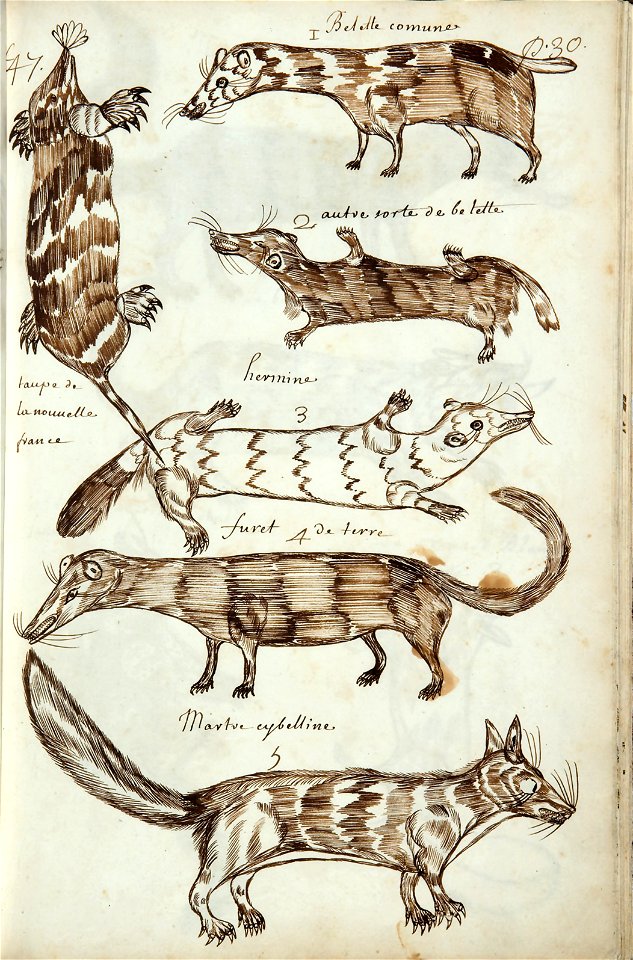 47.
1 Belette comune
P. 30.
2 autre sorte de belette
hermine
3
taupe de
la nouuelle
france
furet 4 de terre
Martre cybelline
5